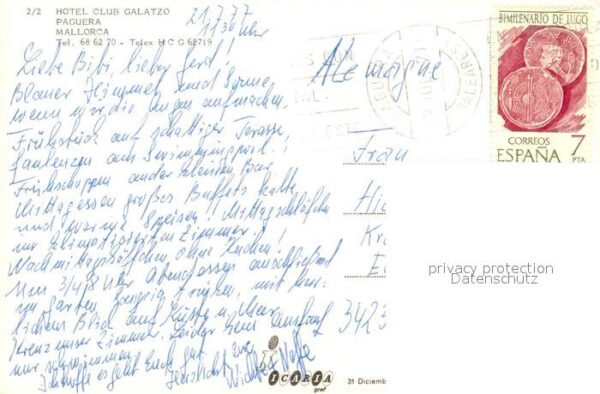 2/2 HOTEL CLUB GALATZO
PAGUERA
MALLORCA
Tel. 68 62 70 - Telex H C G 68719
21.7.77
11.30 Uhr
Liebe Bibi, lieber Gerd!
Blauer Himmel und Sonne,
wenn wir die Augen aufmachen,
Frühstück auf schattiger Terasse,
faulenzen am Swimmingpool!
Frühschoppen an der kleinen Bar
Mittagessen großes Buffet kalte
und warme Speisen! Mittagsschläfchen
im klimatisierten Zimmer!
Nachmittags ohne Kuchen!
Um 3/4 8 Uhr Abendessen anschließend
im Garten
lichem Blick auf Küste u. Meer
Zimmer. Leider kein
nur schwimmen
Ich hoffe es geht Euch gut
Herzlichst
Alemagne
Frau
Hi
Kr
E
3423
BIMILENARIO DE LUGO
CORREOS
ESPAÑA
7
PTA
BALEARES
privacy protection
Datenschutz
ICARIA
graf
31 Diciemb